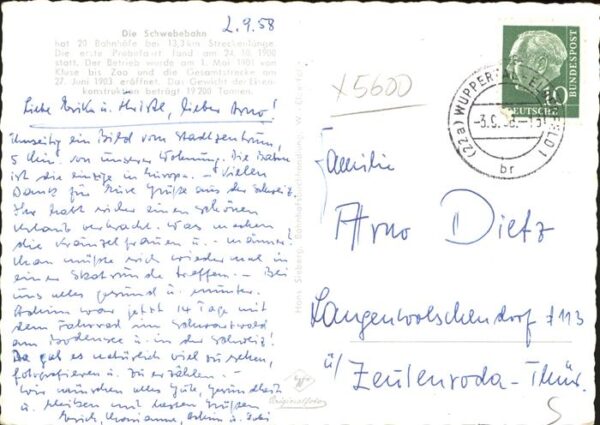 2.9.58
Die Schwebebahn
hat 20 Bahnhöfe bei 13,3 km Streckenlänge.
Die erste Probefahrt fand am 24. 10. 1900
statt. Der Betrieb wurde am 1. Mai 1901 von
Kluse bis Zoo und die Gesamtstrecke am
27. Juni 1903 eröffnet. Das Gewicht der Eisen-
konstruktion beträgt 19200 Tonnen.
Liebe Erika u. Christl, lieber Arno!
Umseitig ein Bild vom Stadtzentrum,
5 Min. von unserer Wohnung. Die Bahn
ist die einzige in Europa. – Vielen
Dank für Eure Grüße aus der Schweiz.
Ihr habt sicher einen schönen
Urlaub verbracht. Was machen
die Kränzelfrauen u. - männer?
Man müßte sich wieder mal in
einer Skatrunde treffen. – Bei
uns alles gesund u. munter.
Achim war jetzt 14 Tage mit
dem Fahrrad im Schwarzwald
am Bodensee u. in der Schweiz.
Da gab es natürlich viel zu sehen,
fotografieren u. zu erzählen. –
Wir wünschen alles Gute, Gesundheit
u. bleiben mit besten Grüßen
Erich, Marianne, Achim u.
Hans Sieberg, Bahnhofsbuchhandlung, W.-Elberfeld
Originalfoto
x5600
DEUTSCHE
BUNDESPOST
10
(22a) WUPPERTAL-ELBERFELD 1
-3.9.58.-15
br
Familie
Arno Dietz
Langenwolschendorf # 113
ü/ Zeulenroda-Thür.
5